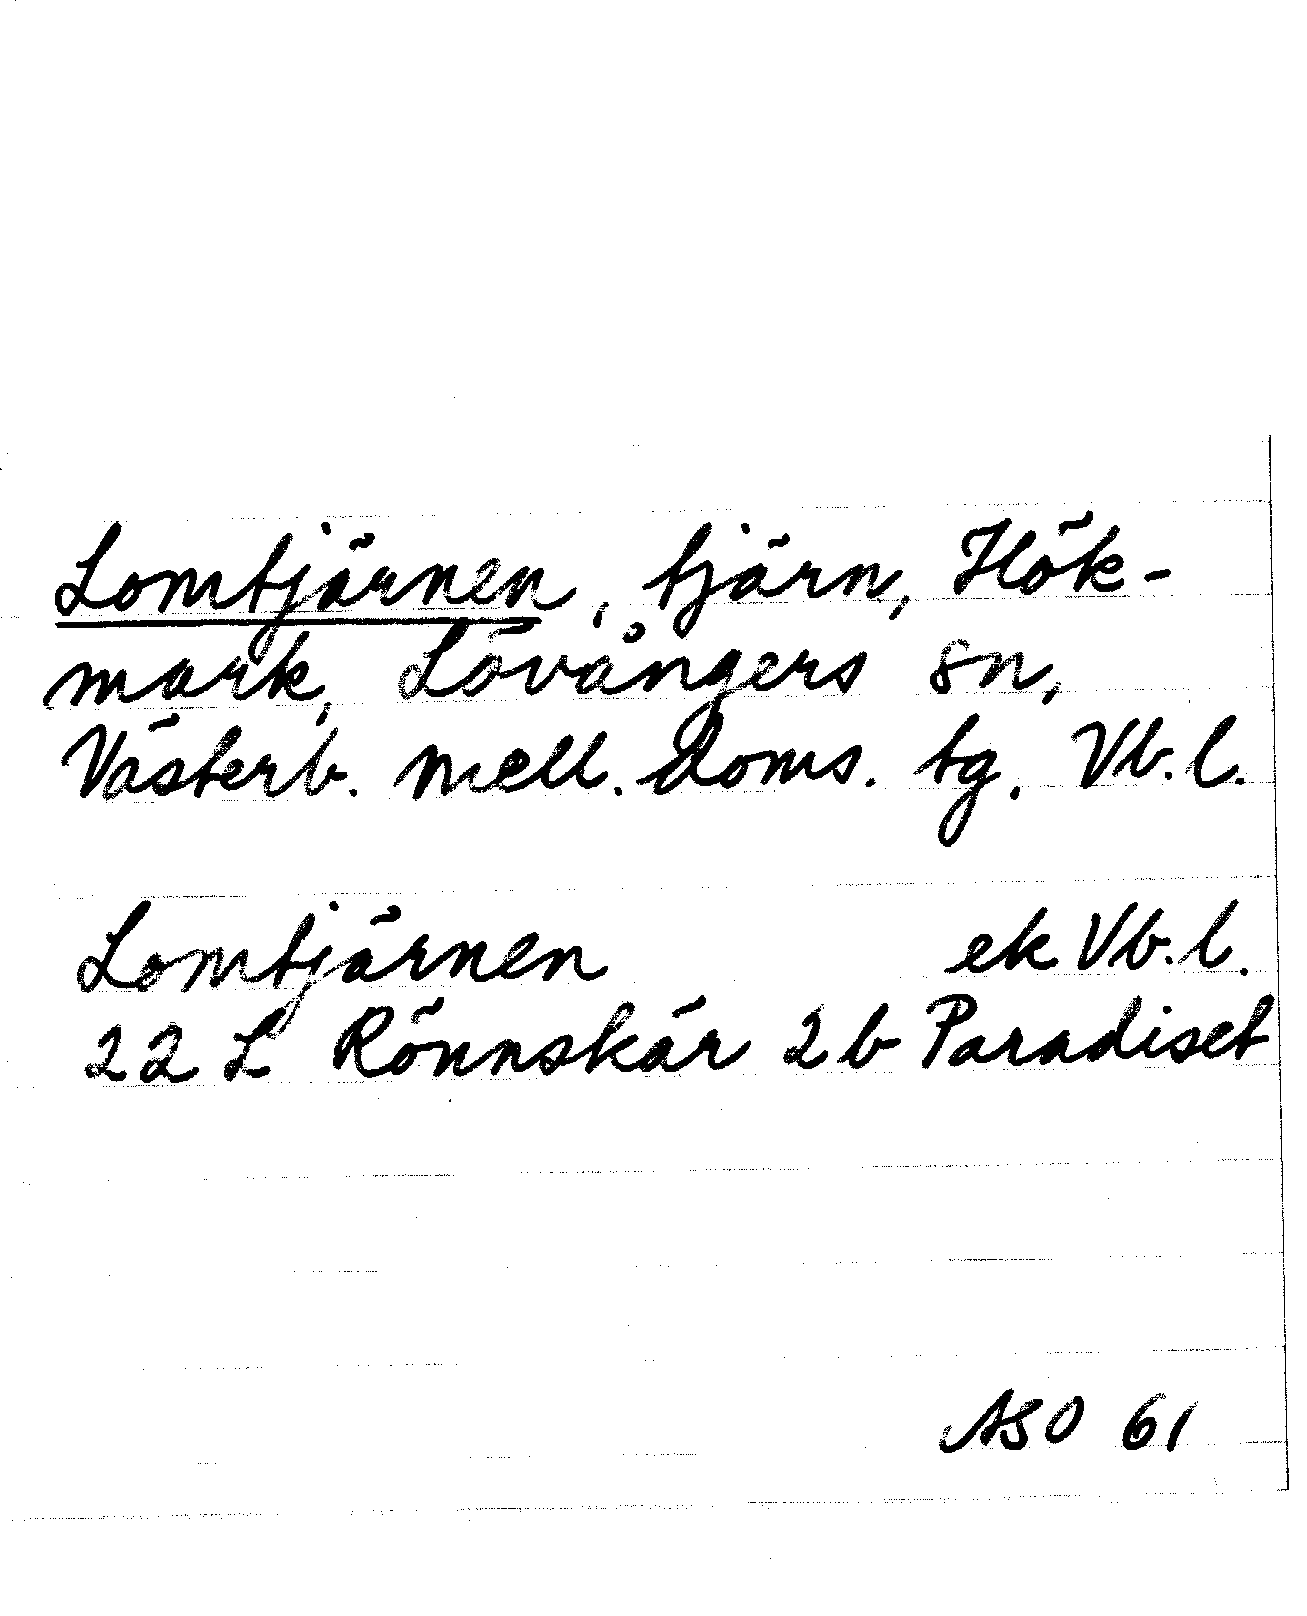 Lomtjärnen, tjärn, Hök-
mark, Lövångers sn,
Västerb. mell. doms. tg. Vb. l.
Lomtjärnen ek Vb. l.
22 L Rönnskär 2 b Paradiset
ASO 61